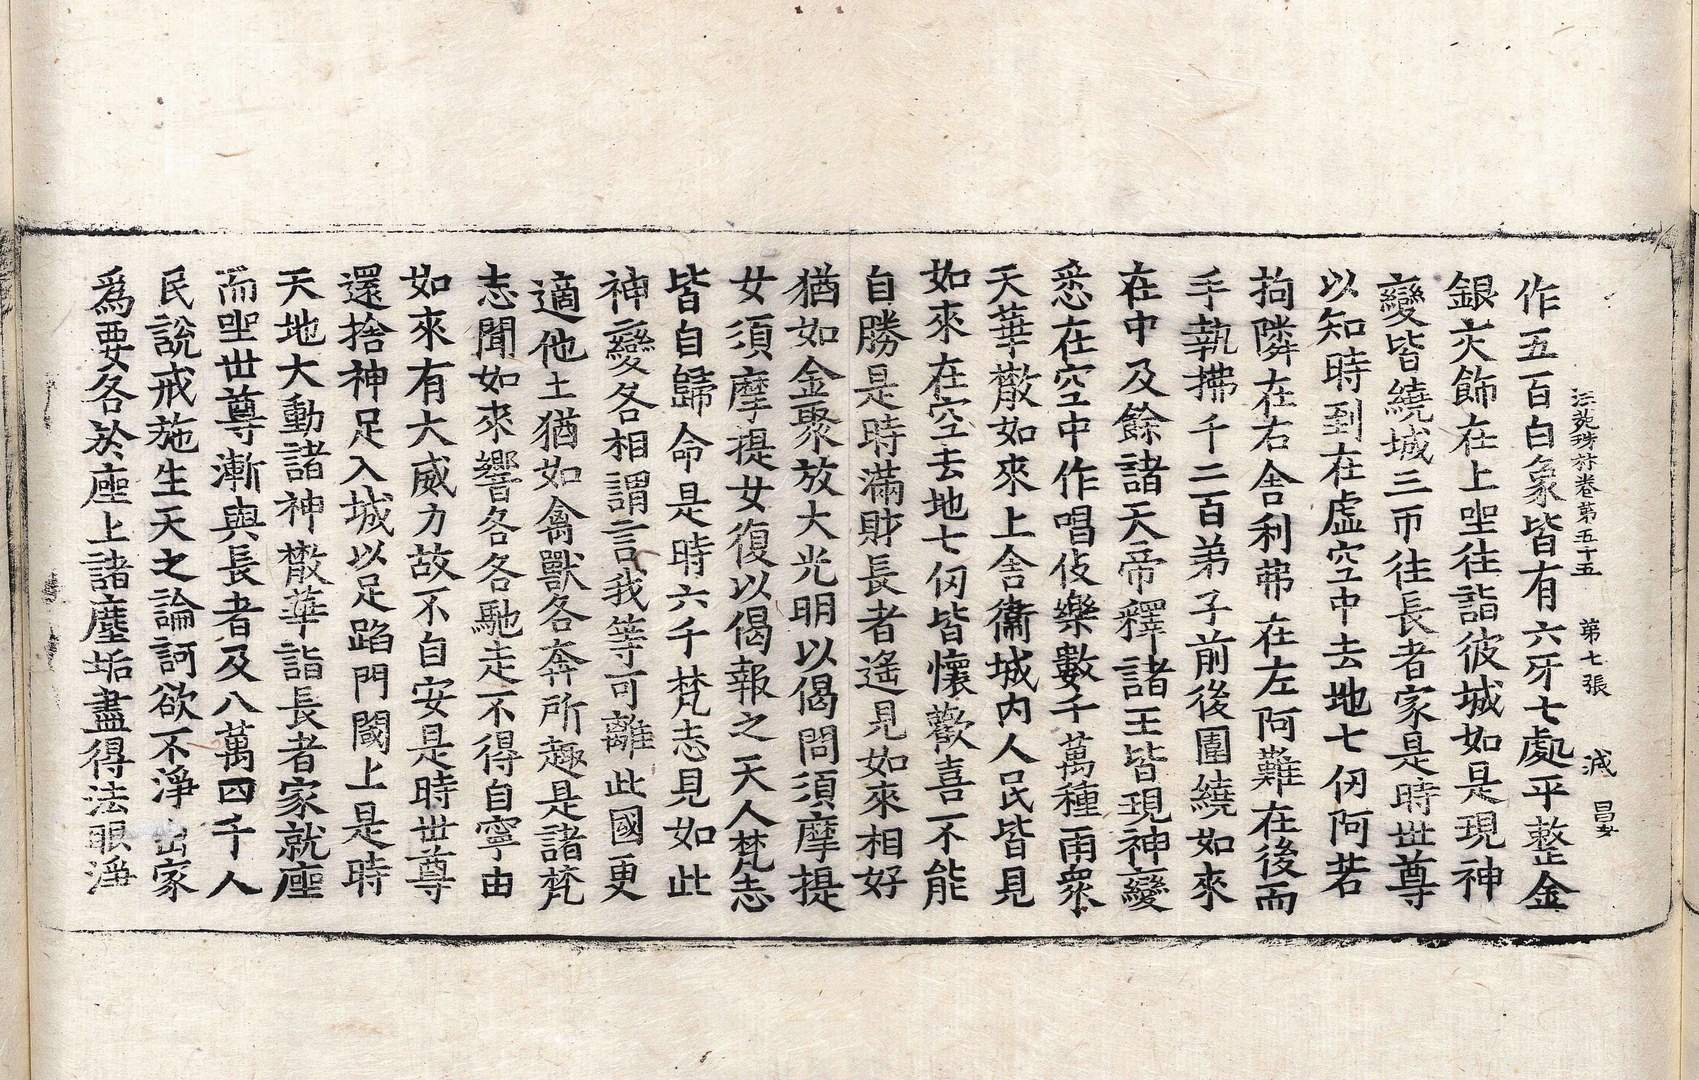 法苑珠林卷第五十五　第七張　滅　昌
作五百白象皆有六牙七處平整金
銀交飾在上坐往詣彼城如是現神
變皆繞城三帀往長者家是時世尊
以知時到在虛空中去地七仞阿若
拘隣在右舍利弗在左阿難在後而
手執拂千二百弟子前後圍繞如來
在中及餘諸天帝釋諸王皆現神變
悉在空中作唱伎樂數千萬種雨衆
天華散如來上舍衞城內人民皆見
如來在空去地七仞皆懷歡喜不能
自勝是時滿財長者遙見如來相好
猶如金聚放大光明以偈問須摩提
女須摩提女復以偈報之天人梵志
皆自歸命是時六千梵志見如此
神變各相謂言我等可離此國更
適他土猶如禽獸各奔所趣是諸梵
志聞如來響各各馳走不得自寧由
如來有大威力故不自安是時世尊
還捨神足入城以足蹈門閫上是時
天地大動諸神散華詣長者家就座
而坐世尊漸與長者及八萬四千人
民說戒施生天之論訶欲不淨出家
爲要各於座上諸塵垢盡得法眼淨